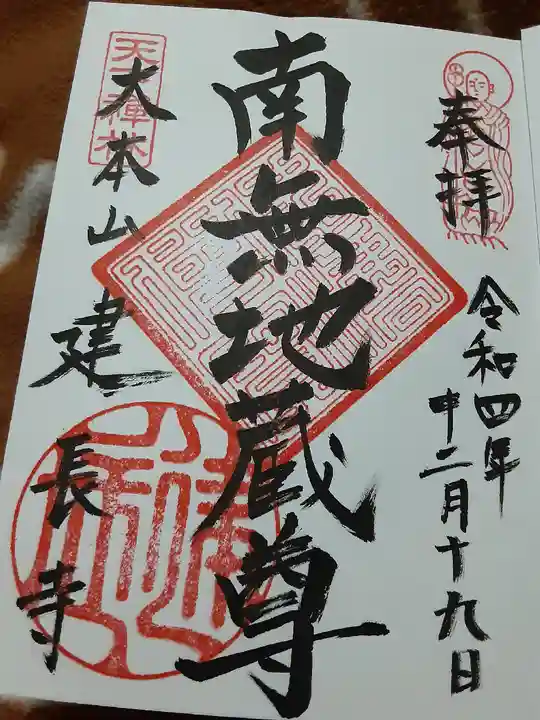 奉拝
令和四年
二月十九日
南無地蔵尊
天下禅林
大本山建長寺